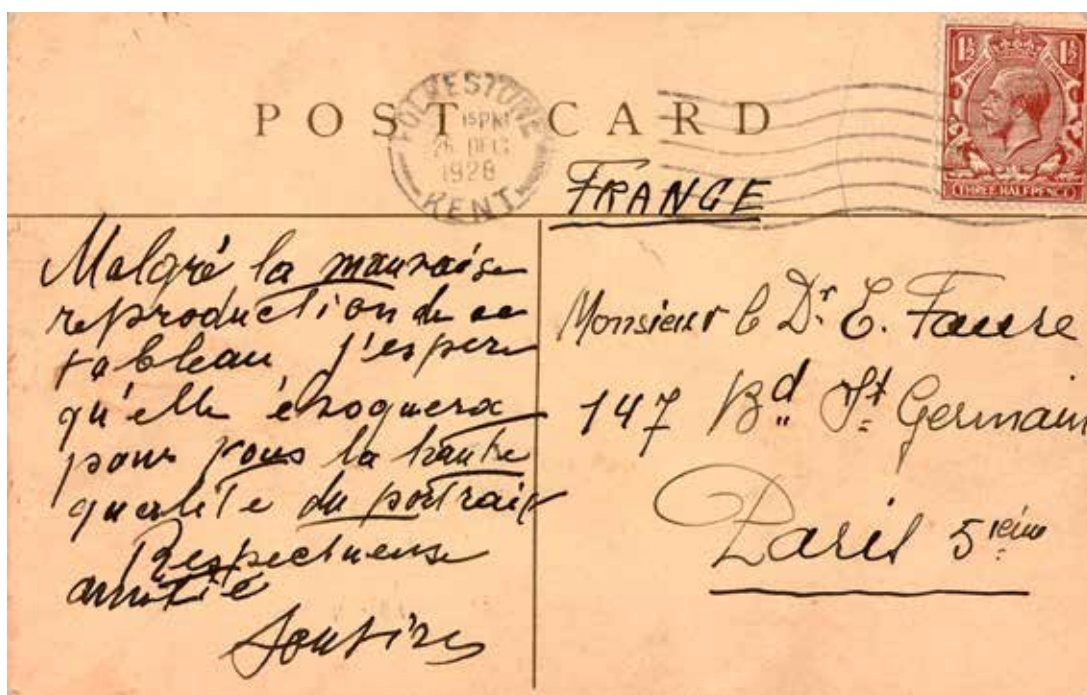 POST CARD
FOLKESTONE
15 PM
26 DEC
1928
KENT
1½ 1½
THREE HALFPENCE
FRANCE
Malgré la mauvaise
reproduction de ce
tableau j'espere
qu'elle évoquera
pour vous la haute
qualite du portrait
Respectueuse
amitié
Soutine
Monsieur le Dr. E. Faure
147 Bd St Germain
Paris 5ieme